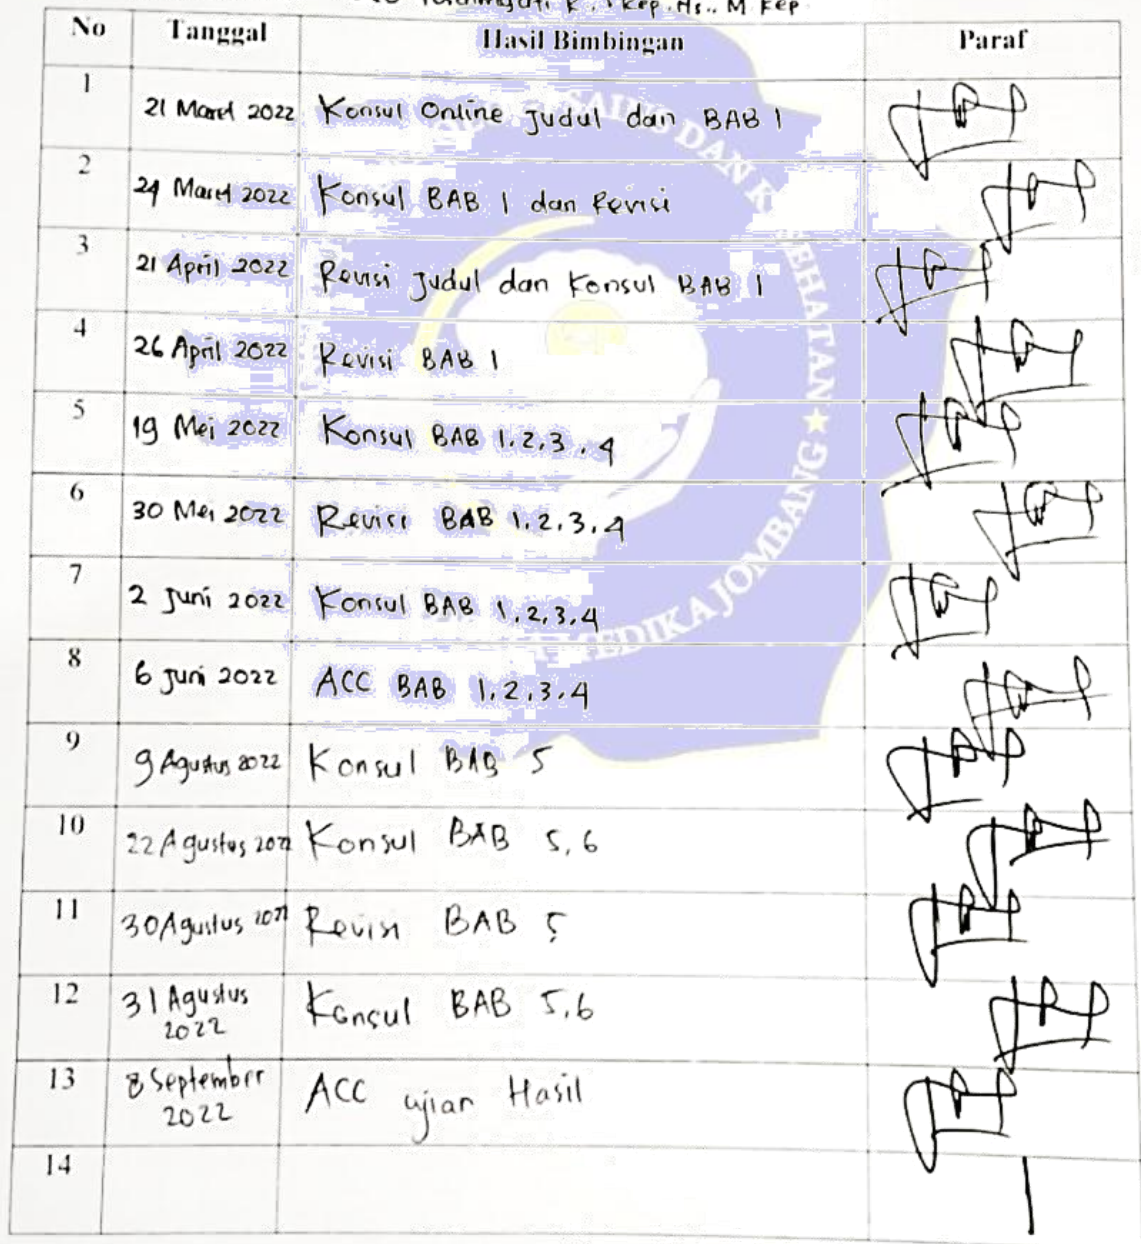 Kep. Ns., M. Kep
No Tanggal Hasil Bimbingan Paraf
1 21 Maret 2022 Konsul Online Judul dan BAB 1
2 24 Maret 2022 Konsul BAB 1 dan Revisi
3 21 April 2022 Revisi Judul dan Konsul BAB 1
4 26 April 2022 Revisi BAB 1
5 19 Mei 2022 Konsul BAB 1.2.3.4
6 30 Mei 2022 Revisi BAB 1.2.3.4
7 2 Juni 2022 Konsul BAB 1.2.3.4
8 6 Juni 2022 ACC BAB 1.2.3.4
9 9 Agustus 2022 Konsul BAB 5
10 22 Agustus 2022 Konsul BAB 5,6
11 30 Agustus 2022 Revisi BAB 5
12 31 Agustus 2022 Konsul BAB 5,6
13 8 September 2022 ACC ujian Hasil
14
SAINS DAN KESEHATAN
MEDIKA JOMBANG